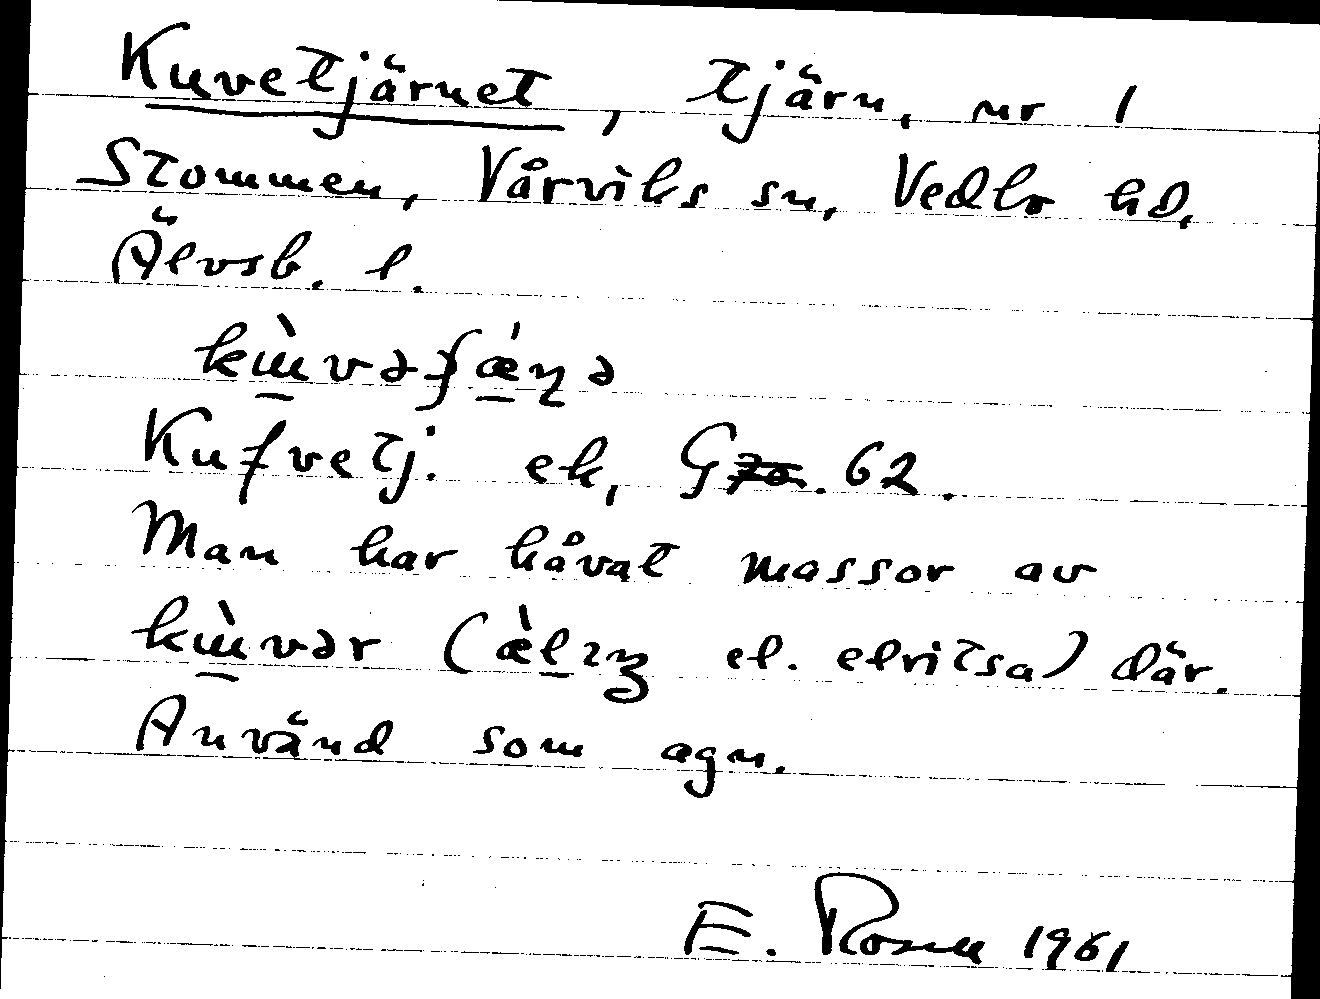 Kuvetjärnet, tjärn, nr 1
Stommen, Vårviks sn, Vedbo hd,
Älvsb. l.
kɯ̀vəʃǽɳə
Kufvetj. ek, G. 62.
Man har håvat massor av
kɯ̀vər (æ̀lɪȝ el. elritsa) där.
Använd som agn.
E. Rosell 1961